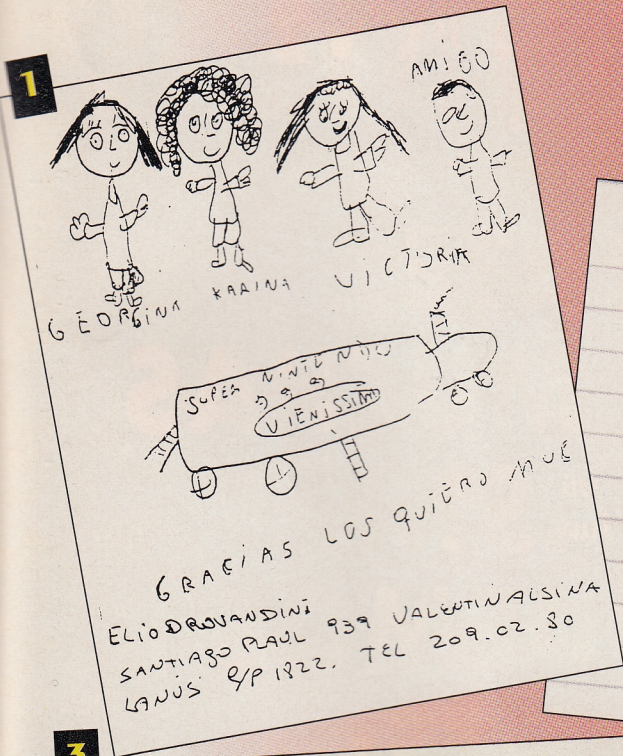 1
AMIGO
GEORGINA KARINA VICTORIA
SUPER NINTENDO
VIENISSIMO
GRACIAS LOS QUIERO MUE
ELIO DROVANDINI
SANTIAGO PLAUL 939 VALENTIN ALSINA
LANUS C/P 1822. TEL 209.02.80
3